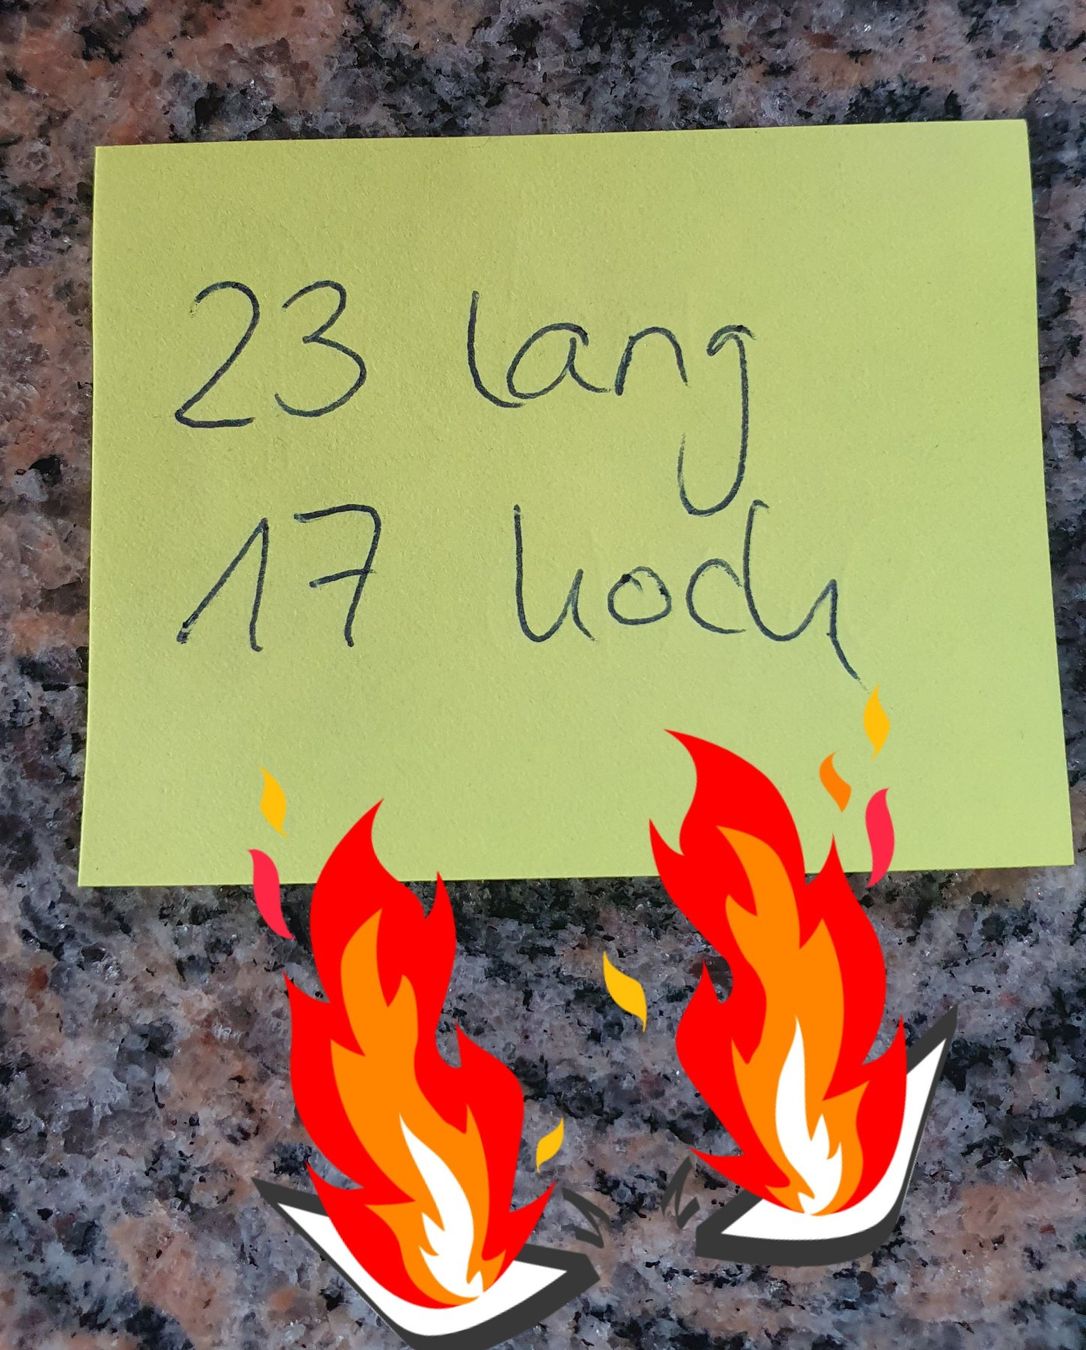 23 lang
17 hoch